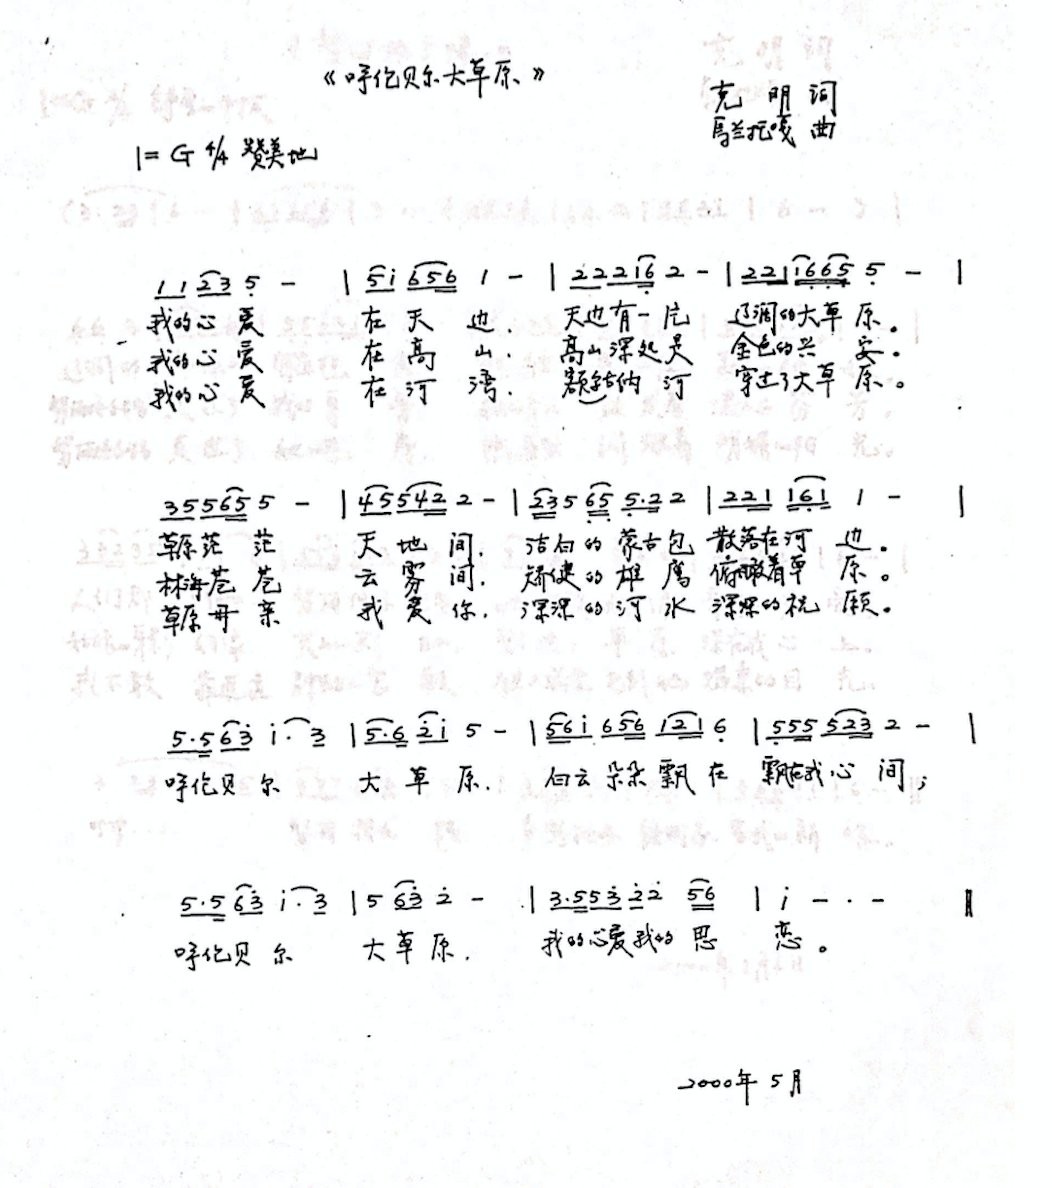 《呼伦贝尔大草原》
克明 词
乌兰托嘎 曲
1=G 4/4 赞美地
1 1 2 3 5 - | 5 i 6 5 6 1 - | 2 2 2 1 6 2 - | 2 2 1 1 6 6 5 5 - |
我的心爱 在天边 天边有一片 辽阔的大草原。
我的心爱 在高山. 高山深处是 金色的兴安。
我的心爱 在河湾. 额尔古纳河 穿过了大草原。
3 5 5 6 5 5 - | 4 5 5 4 2 2 - | 2 3 5 6 5 5·2 2 | 2 2 1 1 6 1 1 - |
草原茫茫 天地间. 洁白的蒙古包 散落在河边。
林海苍苍 云雾间. 矫健的雄鹰 俯瞰着草原。
草原母亲 我爱你. 深深的河水 深深的祝愿。
5·5 6 3 i·3 | 5·6 2 i 5 - | 5 6 i 6 5 6 1 2 1 6 | 5 5 5 5 2 3 2 - |
呼伦贝尔 大草原. 白云朵朵飘在 飘在我心间；
5·5 6 3 i·3 | 5 6 3 2 - | 3·5 5 3 2 2 5 6 | i - · - ‖
呼伦贝尔 大草原. 我的心爱我的思恋。
2000年5月